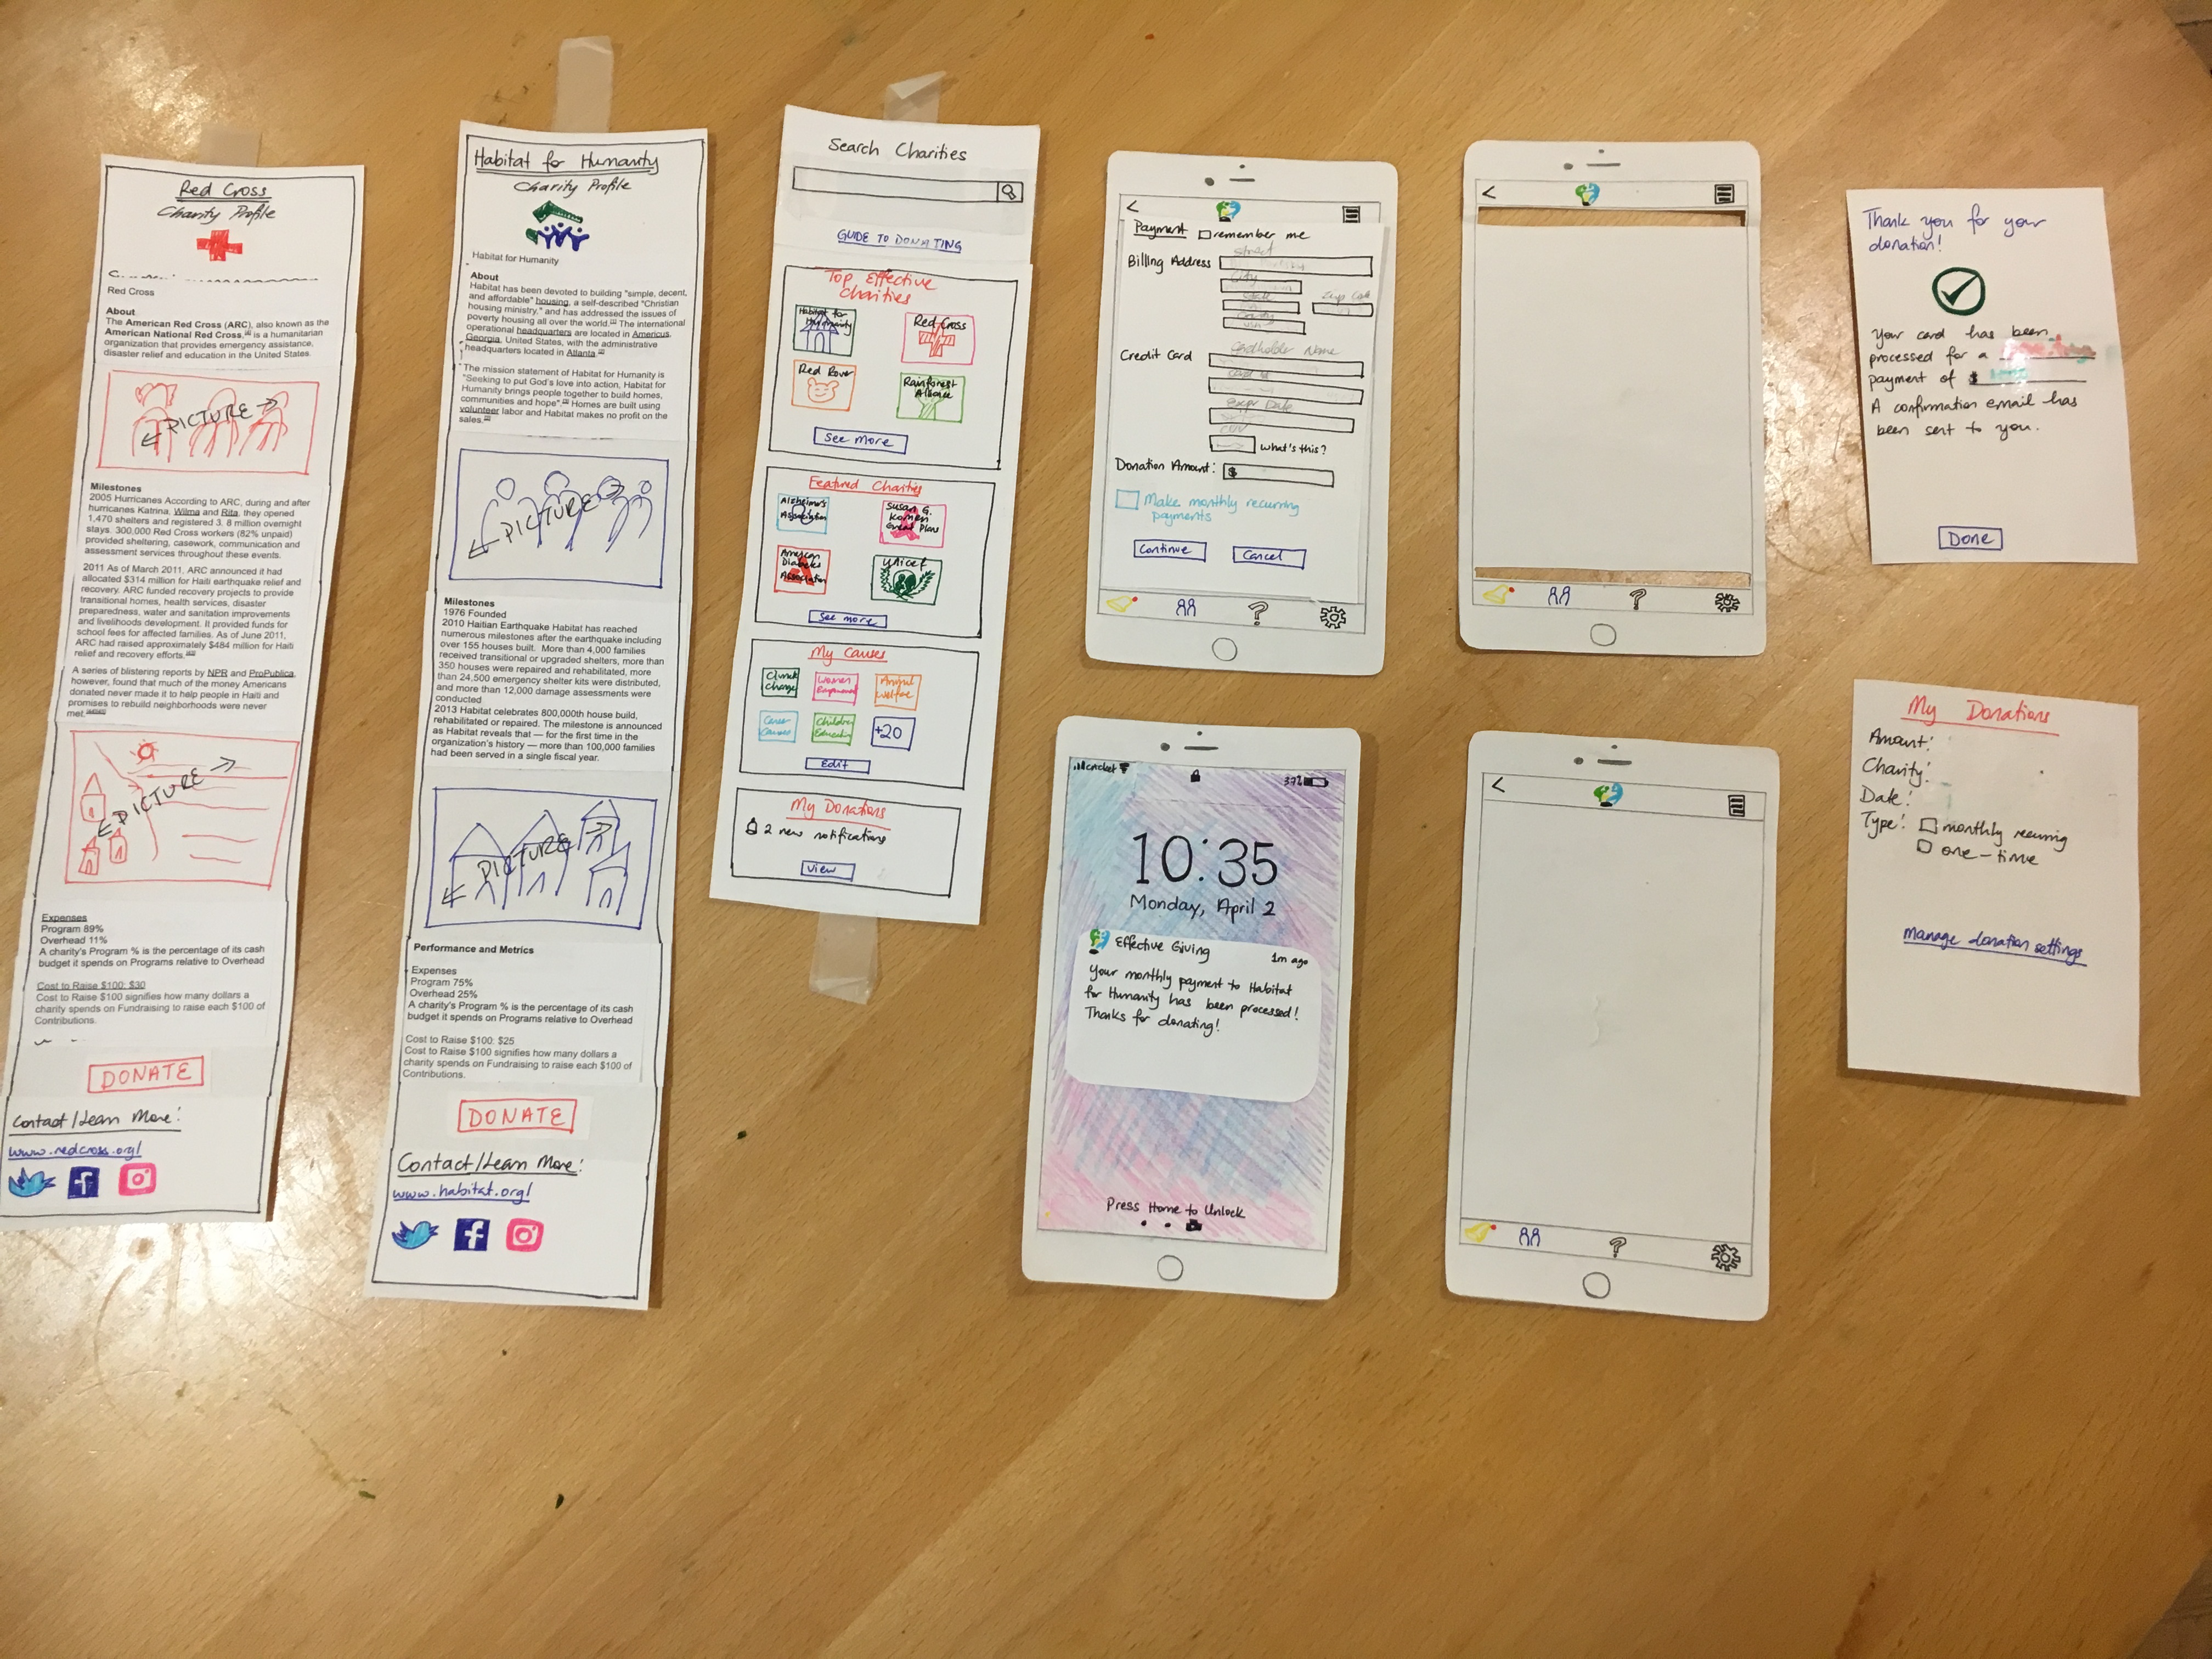 Red Cross
Charity Profile
Red Cross
About
The American Red Cross (ARC), also known as the
American National Red Cross, is a humanitarian
organization that provides emergency assistance,
disaster relief and education in the United States.
← PICTURE →
Milestones
2005 Hurricanes According to ARC, during and after
hurricanes Katrina, Wilma and Rita, they opened
1,470 shelters and registered 3. 8 million overnight
stays. 300,000 Red Cross workers (82% unpaid)
provided sheltering, casework, communication and
assessment services throughout these events.
2011 As of March 2011, ARC announced it had
allocated $314 million for Haiti earthquake relief and
recovery. ARC funded recovery projects to provide
transitional homes, health services, disaster
preparedness, water and sanitation improvements
and livelihoods development. It provided funds for
school fees for affected families. As of June 2011,
ARC had raised approximately $484 million for Haiti
relief and recovery efforts.
A series of blistering reports by NPR and ProPublica,
however, found that much of the money Americans
donated never made it to help people in Haiti and
promises to rebuild neighborhoods were never
met.
← PICTURE →
Expenses
Program 89%
Overhead 11%
A charity's Program % is the percentage of its cash
budget it spends on Programs relative to Overhead
Cost to Raise $100: $30
Cost to Raise $100 signifies how many dollars a
charity spends on Fundraising to raise each $100 of
Contributions.
DONATE
Contact/Learn More:
www.redcross.org/
Habitat for Humanity
Charity Profile
Habitat for Humanity
About
Habitat has been devoted to building "simple, decent,
and affordable" housing, a self-described "Christian
housing ministry," and has addressed the issues of
poverty housing all over the world. The international
operational headquarters are located in Americus,
Georgia, United States, with the administrative
headquarters located in Atlanta.
The mission statement of Habitat for Humanity is
"Seeking to put God's love into action, Habitat for
Humanity brings people together to build homes,
communities and hope". Homes are built using
volunteer labor and Habitat makes no profit on the
sales.
← PICTURE →
Milestones
1976 Founded
2010 Haitian Earthquake Habitat has reached
numerous milestones after the earthquake including
over 155 houses built. More than 4,000 families
received transitional or upgraded shelters, more than
350 houses were repaired and rehabilitated, more
than 24,500 emergency shelter kits were distributed,
and more than 12,000 damage assessments were
conducted
2013 Habitat celebrates 800,000th house build,
rehabilitated or repaired. The milestone is announced
as Habitat reveals that — for the first time in the
organization's history — more than 100,000 families
had been served in a single fiscal year.
← PICTURE →
Performance and Metrics
Expenses
Program 75%
Overhead 25%
A charity's Program % is the percentage of its cash
budget it spends on Programs relative to Overhead
Cost to Raise $100: $25
Cost to Raise $100 signifies how many dollars a
charity spends on Fundraising to raise each $100 of
Contributions.
DONATE
Contact/Learn More:
www.habitat.org/
Search Charities
GUIDE TO DONATING
Top Effective
Charities
Habitat for
Humanity
Red Cross
Red Rover
Rainforest
Alliance
See More
Featured Charities
Alzheimer's
Association
Susan G.
Komen
American
Diabetes
Association
Unicef
See more
My Causes
Climate
Change
Women
Animal
Welfare
Children
+20
Edit
My Donations
2 new notifications
View
Payment
remember me
Billing Address
Street
City
Credit Card
Cardholder Name
What's this?
Donation Amount: $
Make monthly recurring
payments
Continue
Cancel
AA ?
cricket
37%
10:35
Monday, April 2
Effective Giving
1m ago
Your monthly payment to Habitat
for Humanity has been processed!
Thanks for donating!
Press Home to Unlock
< 
AA ?
<
AA ?
Thank you for your
donation!
Your card has been
processed for a
payment of $
A confirmation email has
been sent to you.
Done
My Donations
Amount:
Charity:
Date:
Type: monthly recurring
one-time
Manage donation settings